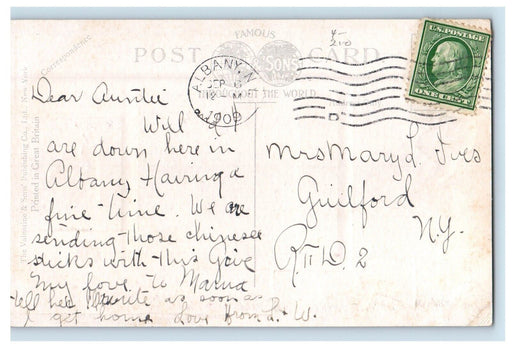 FAMOUS
POST CARD
& SONS
THROUGHOUT THE WORLD
Correspondence.
The Valentine & Sons' Publishing Co., Ltd. New York
Printed in Great Britain
4/200
ALBANY, N.
SEP
12 M
1909
D
U.S. POSTAGE
ONE CENT
Dear Auntie
Will &
are down here in
Albany Having a
fine time. We are
sending those chinese
sticks with this Give
my love to Mama
tell her I'll write as soon as
I get home Love from L. & W.
Mrs Mary L. Ives
Guilford
N.Y.
R F D. 2